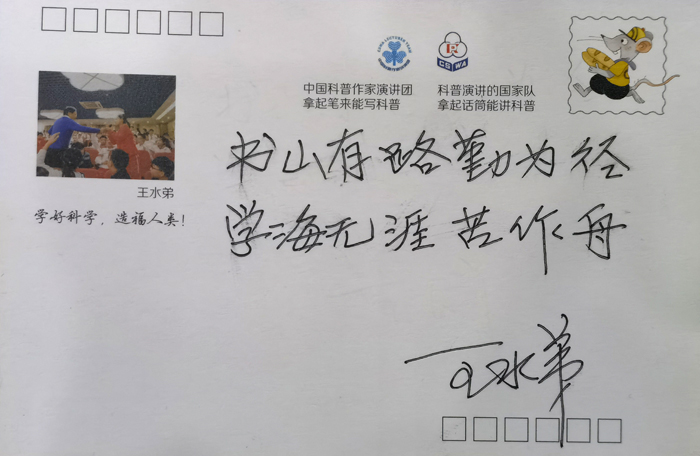 中国科普作家演讲团
拿起笔来能写科普
科普演讲的国家队
拿起话筒能讲科普
CSWA
王水弟
学好科学，造福人类！
书山有路勤为径
学海无涯苦作舟
王水弟